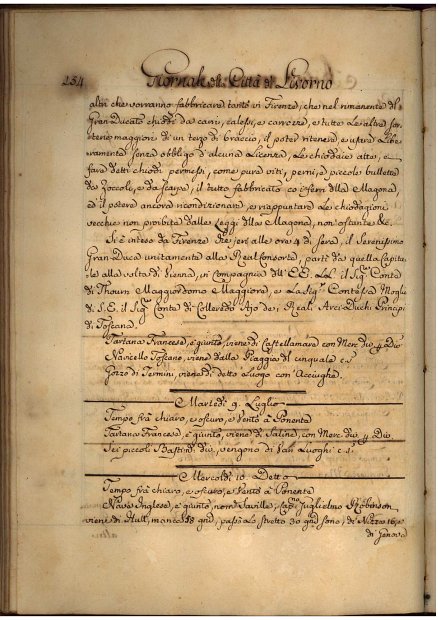 154 Giornale della Città di Livorno
altri che vorranno fabbricare tanto in Firenze, che nel rimanente del
Gran Ducato chiodi da carri, calessi, e carrozze, e tutte le altre
maggiori di un terzo di braccio, il poter ritenere, e usare Libe=
ramente senza obbligo d'alcuna Licenza, le chiodaie atte, a
fare detti chiodi permessi, come pure viti, perni, e piccole bullette
da Zoccoli, e da scarpe, il tutto fabbricato co i ferri della Magona,
ed il potere ancora ricondizionare, e riappuntare le chiodagioni
vecchie non proibite dalle Leggi della Magona, non ostante &c.
Si è inteso da Firenze che jeri alle ore 4 di sera, il Serenissimo
Gran Duca unitamente alla Real Consorte, partì da quella Capita=
le alla volta di Vienna, in compagnia dell' EE. LL. il Sig. Conte
di Thourn Maggiordomo Maggiore, e La Sig. Contessa Moglie
di S. E. il Sig. Conte di Colleredo Ajo de i Reali Arci-Duchi Principi
di Toscana.
Tartana Francese, è giunto, viene di Castellamare con Merc. div. 4 Div.
Navicello Toscano, viene dalla Piaggia del Cinquale c. s.
Gozzo di Termini, viene di detto Luogo con Acciughe.
Martedì 9. Luglio
Tempo frà chiaro, e oscuro, e Vento à Ponente
Tartana Francese, è giunto, viene di Saline, con Merc. div. 4. Div.
Sei piccoli Bastim. div. vengono di Van Luoghi c. s.
Mercoldì 10. Detto
Tempo frà chiaro, e oscuro, e Vento à Ponente
Nave Inglese, è giunto, nom. Saville, Cap.no Guglielmo Robinson
viene di Hull, manca 58 gni, passò lo stretto 30 gni sono, di Nizza 16, e
di Genova